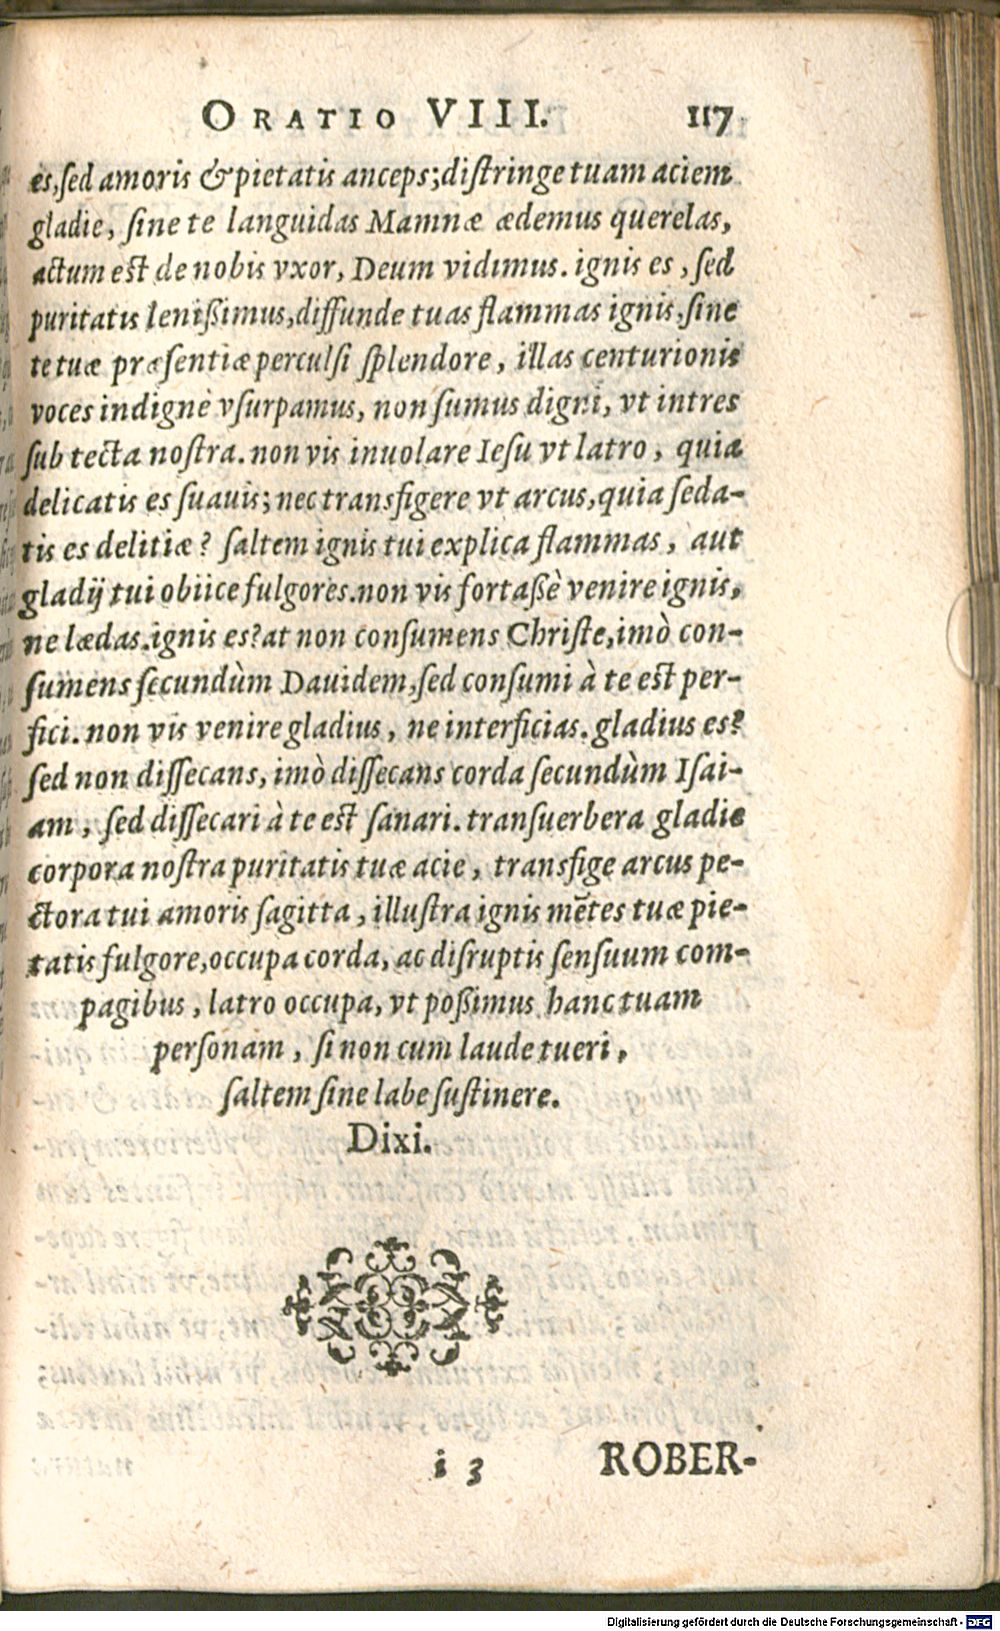 ORATIO VIII. 117
es, ſed amoris & pietatis anceps; diſtringe tuam aciem
gladie, ſine te languidas Mamnæ ædemus querelas,
actum eſt de nobis vxor, Deum vidimus. ignis es, ſed
puritatis leniſſimus, diffunde tuas flammas ignis, ſine
te tuæ præſentiæ perculſi ſplendore, illas centurionis
voces indignè vſurpamus, non ſumus digni, vt intres
ſub tecta noſtra. non vis inuolare Ieſu vt latro, quia
delicatis es ſuauis; nec transfigere vt arcus, quia ſeda-
tis es delitiæ? ſaltem ignis tui explica flammas, aut
gladij tui obiice fulgores. non vis fortaßè venire ignis,
ne lædas. ignis es? at non conſumens Chriſte, imò con-
ſumens ſecundùm Dauidem, ſed conſumi à te eſt per-
fici. non vis venire gladius, ne interficias. gladius es?
ſed non diſſecans, imò diſſecans corda ſecundùm Iſai-
am, ſed diſſecari à te eſt ſanari. transuerbera gladie
corpora noſtra puritatis tuæ acie, transfige arcus pe-
ctora tui amoris ſagitta, illuſtra ignis mẽtes tuæ pie-
tatis fulgore, occupa corda, ac diſruptis ſenſuum com-
pagibus, latro occupa, vt poßimus hanc tuam
perſonam, ſi non cum laude tueri,
ſaltem ſine labe ſuſtinere.
Dixi.
i 3 ROBER-
Digitalisierung gefördert durch die Deutsche Forschungsgemeinschaft - DFG